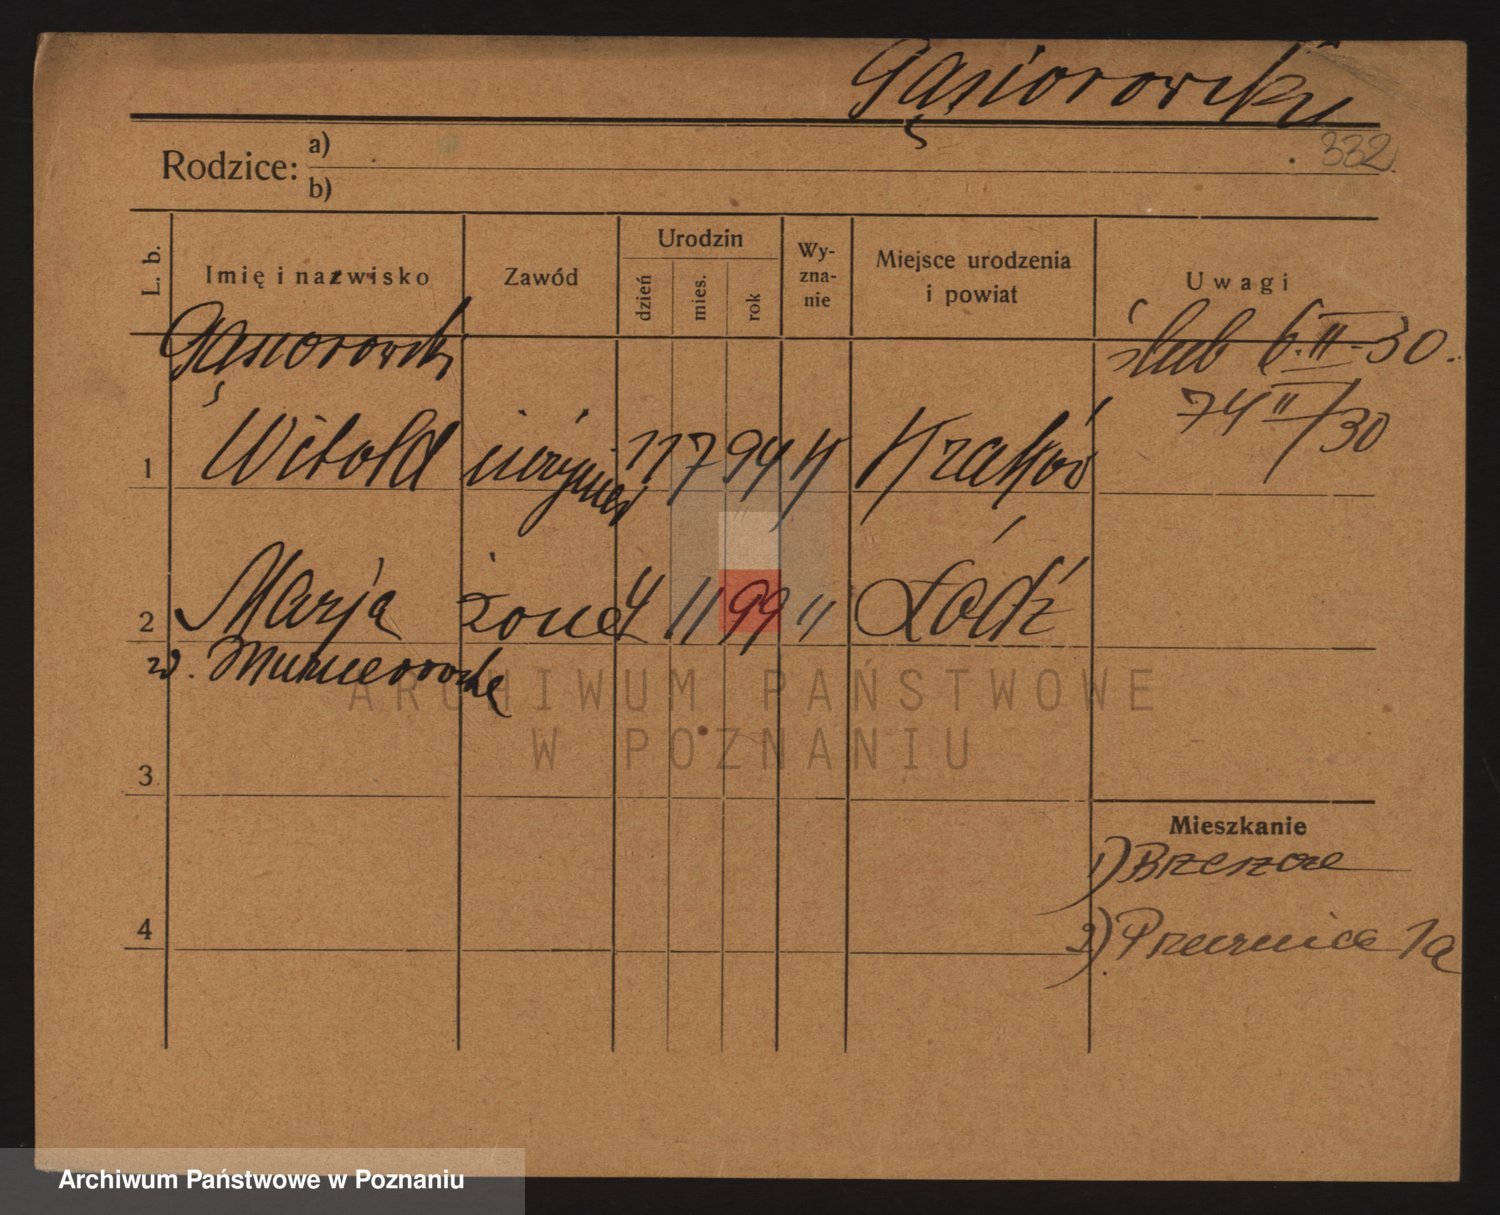 Gąsiorowski
332
Rodzice: a)
b)
L. b.
Imię i nazwisko
Zawód
Urodzin
dzień
mies.
rok
Wy-
zna-
nie
Miejsce urodzenia
i powiat
Uwagi
Gąsiorowski
ślub 6.II.30.
74 II/30
1 Witold inżynier 11 7 94 K Kraków
2 Marja żona 4 11 99 " Łódź
w.
ARCHIWUM PAŃSTWOWE
W POZNANIU
3
Mieszkanie
1) Brzeszcze
4
2) 1a
Archiwum Państwowe w Poznaniu